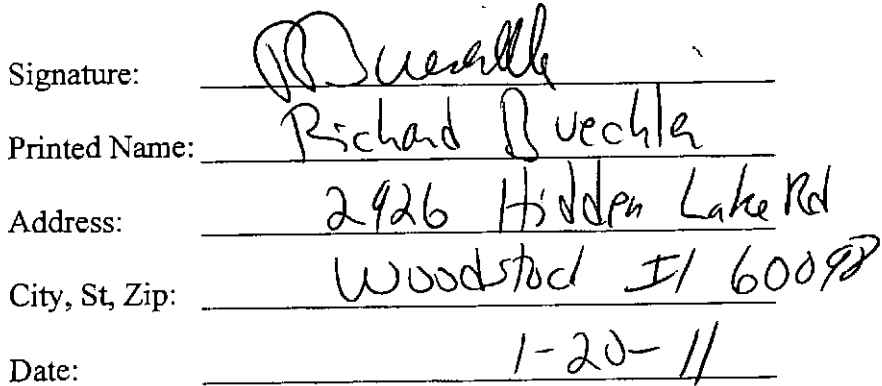 Signature:
Printed Name: Richard Buechler
Address: 2926 Hidden Lake Rd
City, St, Zip: Woodstock Il 60098
Date: 1-20-11